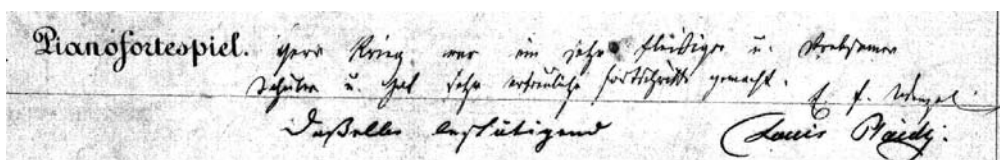 Pianofortespiel. Herr Krieg war ein sehr fleißiger u. strebsamer
Schüler u. hat sehr erfreuliche Fortschritte gemacht.
E. F. Wenzel.
Dasselbe bestätigend Louis Plaidy.